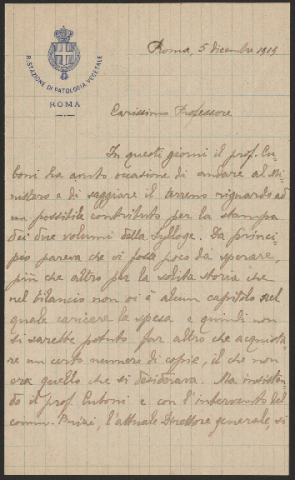 R. STAZIONE DI PATOLOGIA VEGETALE
ROMA
Roma, 5 dicembre 1919
Carissimo Professore
In questi giorni il prof. Cu-
boni ha avuto occasione di andare al Mi-
nistero e di saggiare il terreno riguardo ad
un possibile contributo per la stampa
dei due volumi della Sylloge. Da princi-
pio pareva che vi fosse poco da sperare,
più che altro per la solita storia che
nel bilancio non vi è alcun capitolo sul
quale caricare la spesa e quindi non
si sarebbe potuto far altro che acquista-
re un certo numero di copie, il che non
era quello che si desiderava. Ma insisten-
do il prof. Cuboni e con l'intervento del
comm. Brizi, l'attuale Direttore generale, si